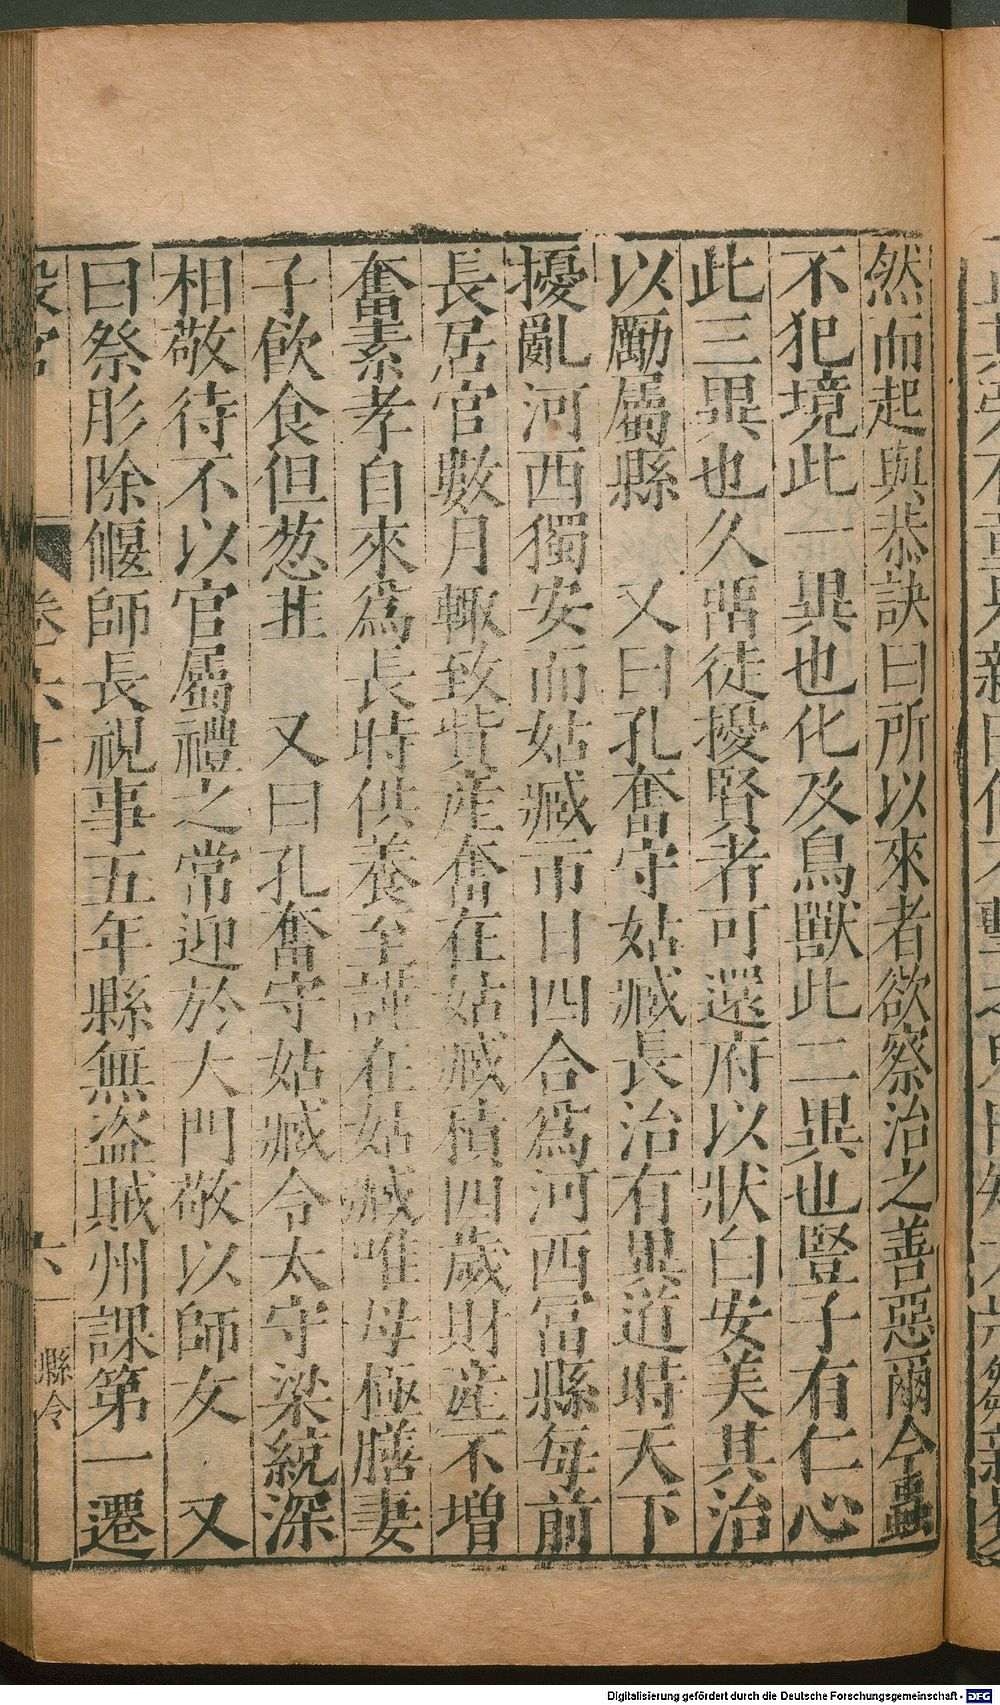 然而起與恭訣曰所以來者欲察治之善惡爾今蟲
不犯境此一異也化及鳥獸此二異也豎子有仁心
此三異也久留徒擾賢者可還府以狀白安美其治
以勵屬縣 又曰孔奮守姑臧長治有異道時天下
擾亂河西獨安而姑臧市日四合爲河西富縣每前
長居官數月輙致貲產奮在姑臧積四歲財產不增
奮素孝自來爲長時供養至謹在姑臧唯母極膳妻
子飲食但葱韭 又曰孔奮守姑臧令太守梁統深
相敬待不以官屬禮之常迎於大門敬以師友 又
曰祭肜除偃師長視事五年縣無盜賊州課第一遷
卷六十
六
縣令
Digitalisierung gefördert durch die Deutsche Forschungsgemeinschaft - DFG